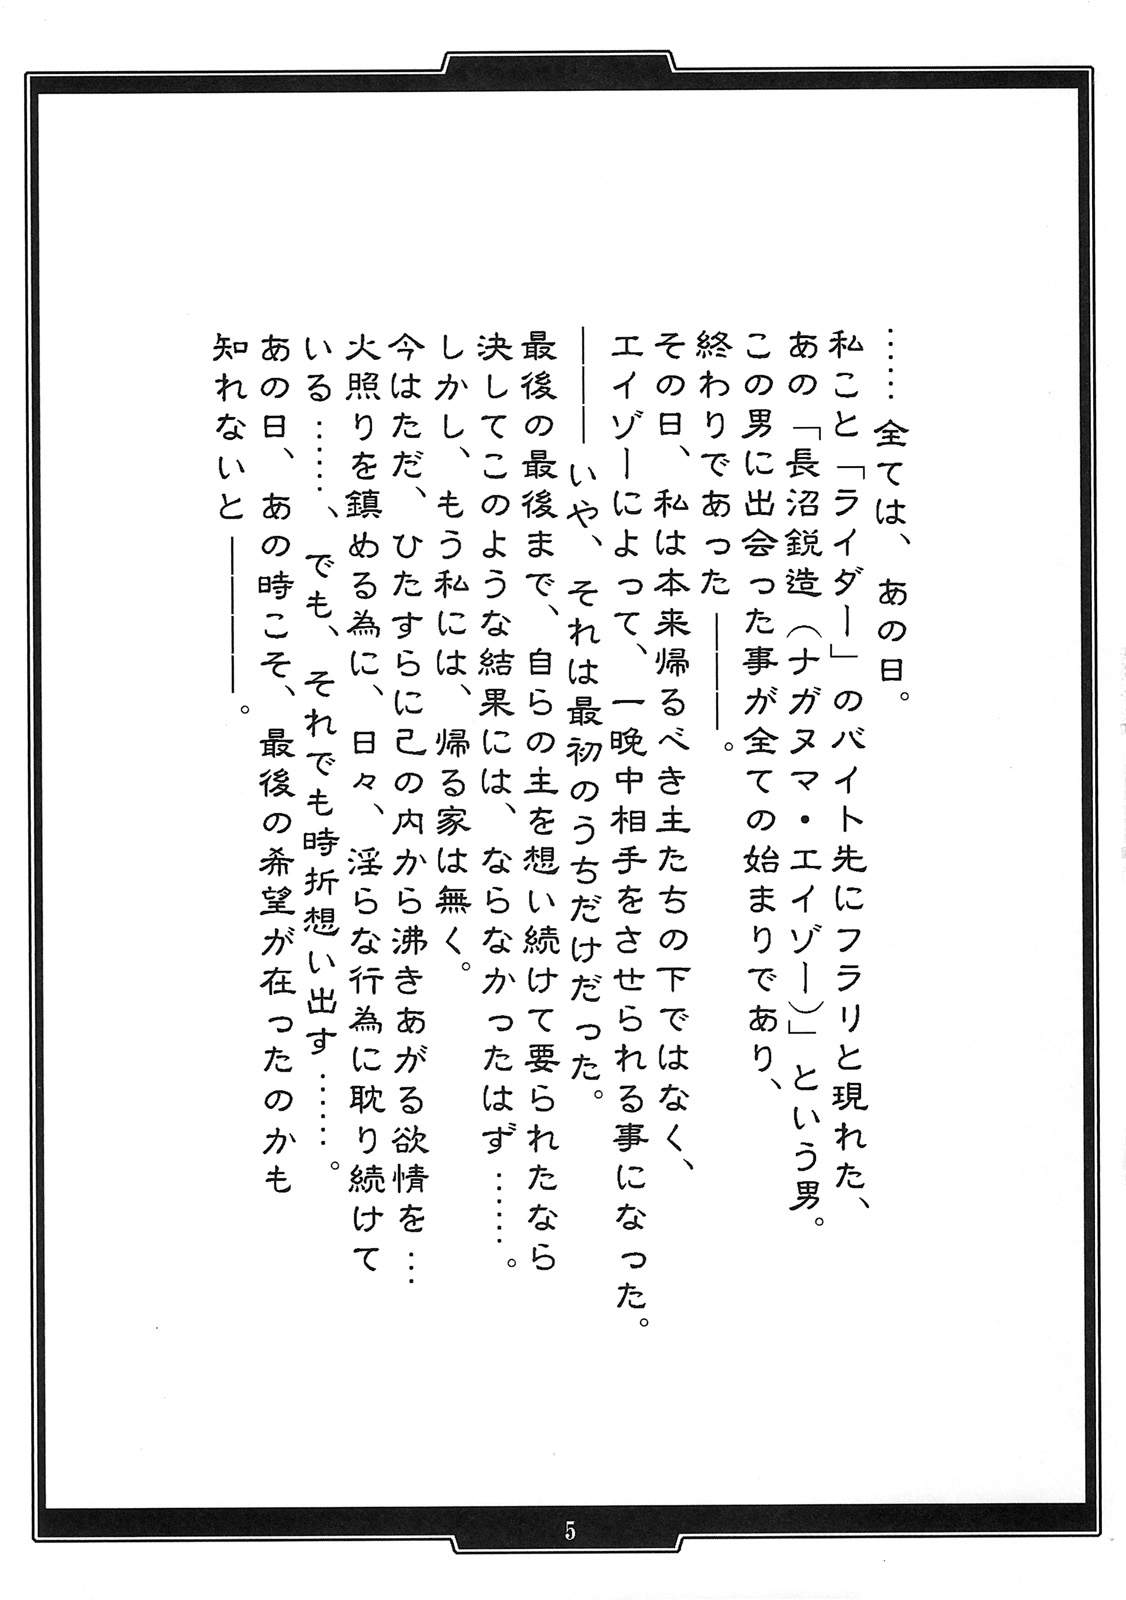 ……全ては、あの日。
私こと「ライダー」のバイト先にフラリと現れた、
あの「長沼鋭造（ナガヌマ・エイゾー）」という男。
この男に出会った事が全ての始まりであり、
終わりであった―――。
その日、私は本来帰るべき主たちの下ではなく、
エイゾーによって、一晩中相手をさせられる事になった。
―――いや、それは最初のうちだけだった。
最後の最後まで、自らの主を想い続けて要られたなら
決してこのような結果には、ならなかったはず……。
しかし、もう私には、帰る家は無く。
今はただ、ひたすらに己の内から沸きあがる欲情を…
火照りを鎮める為に、日々、淫らな行為に耽り続けて
いる……、でも、それでも時折想い出す……。
あの日、あの時こそ、最後の希望が在ったのかも
知れないと――――。
5